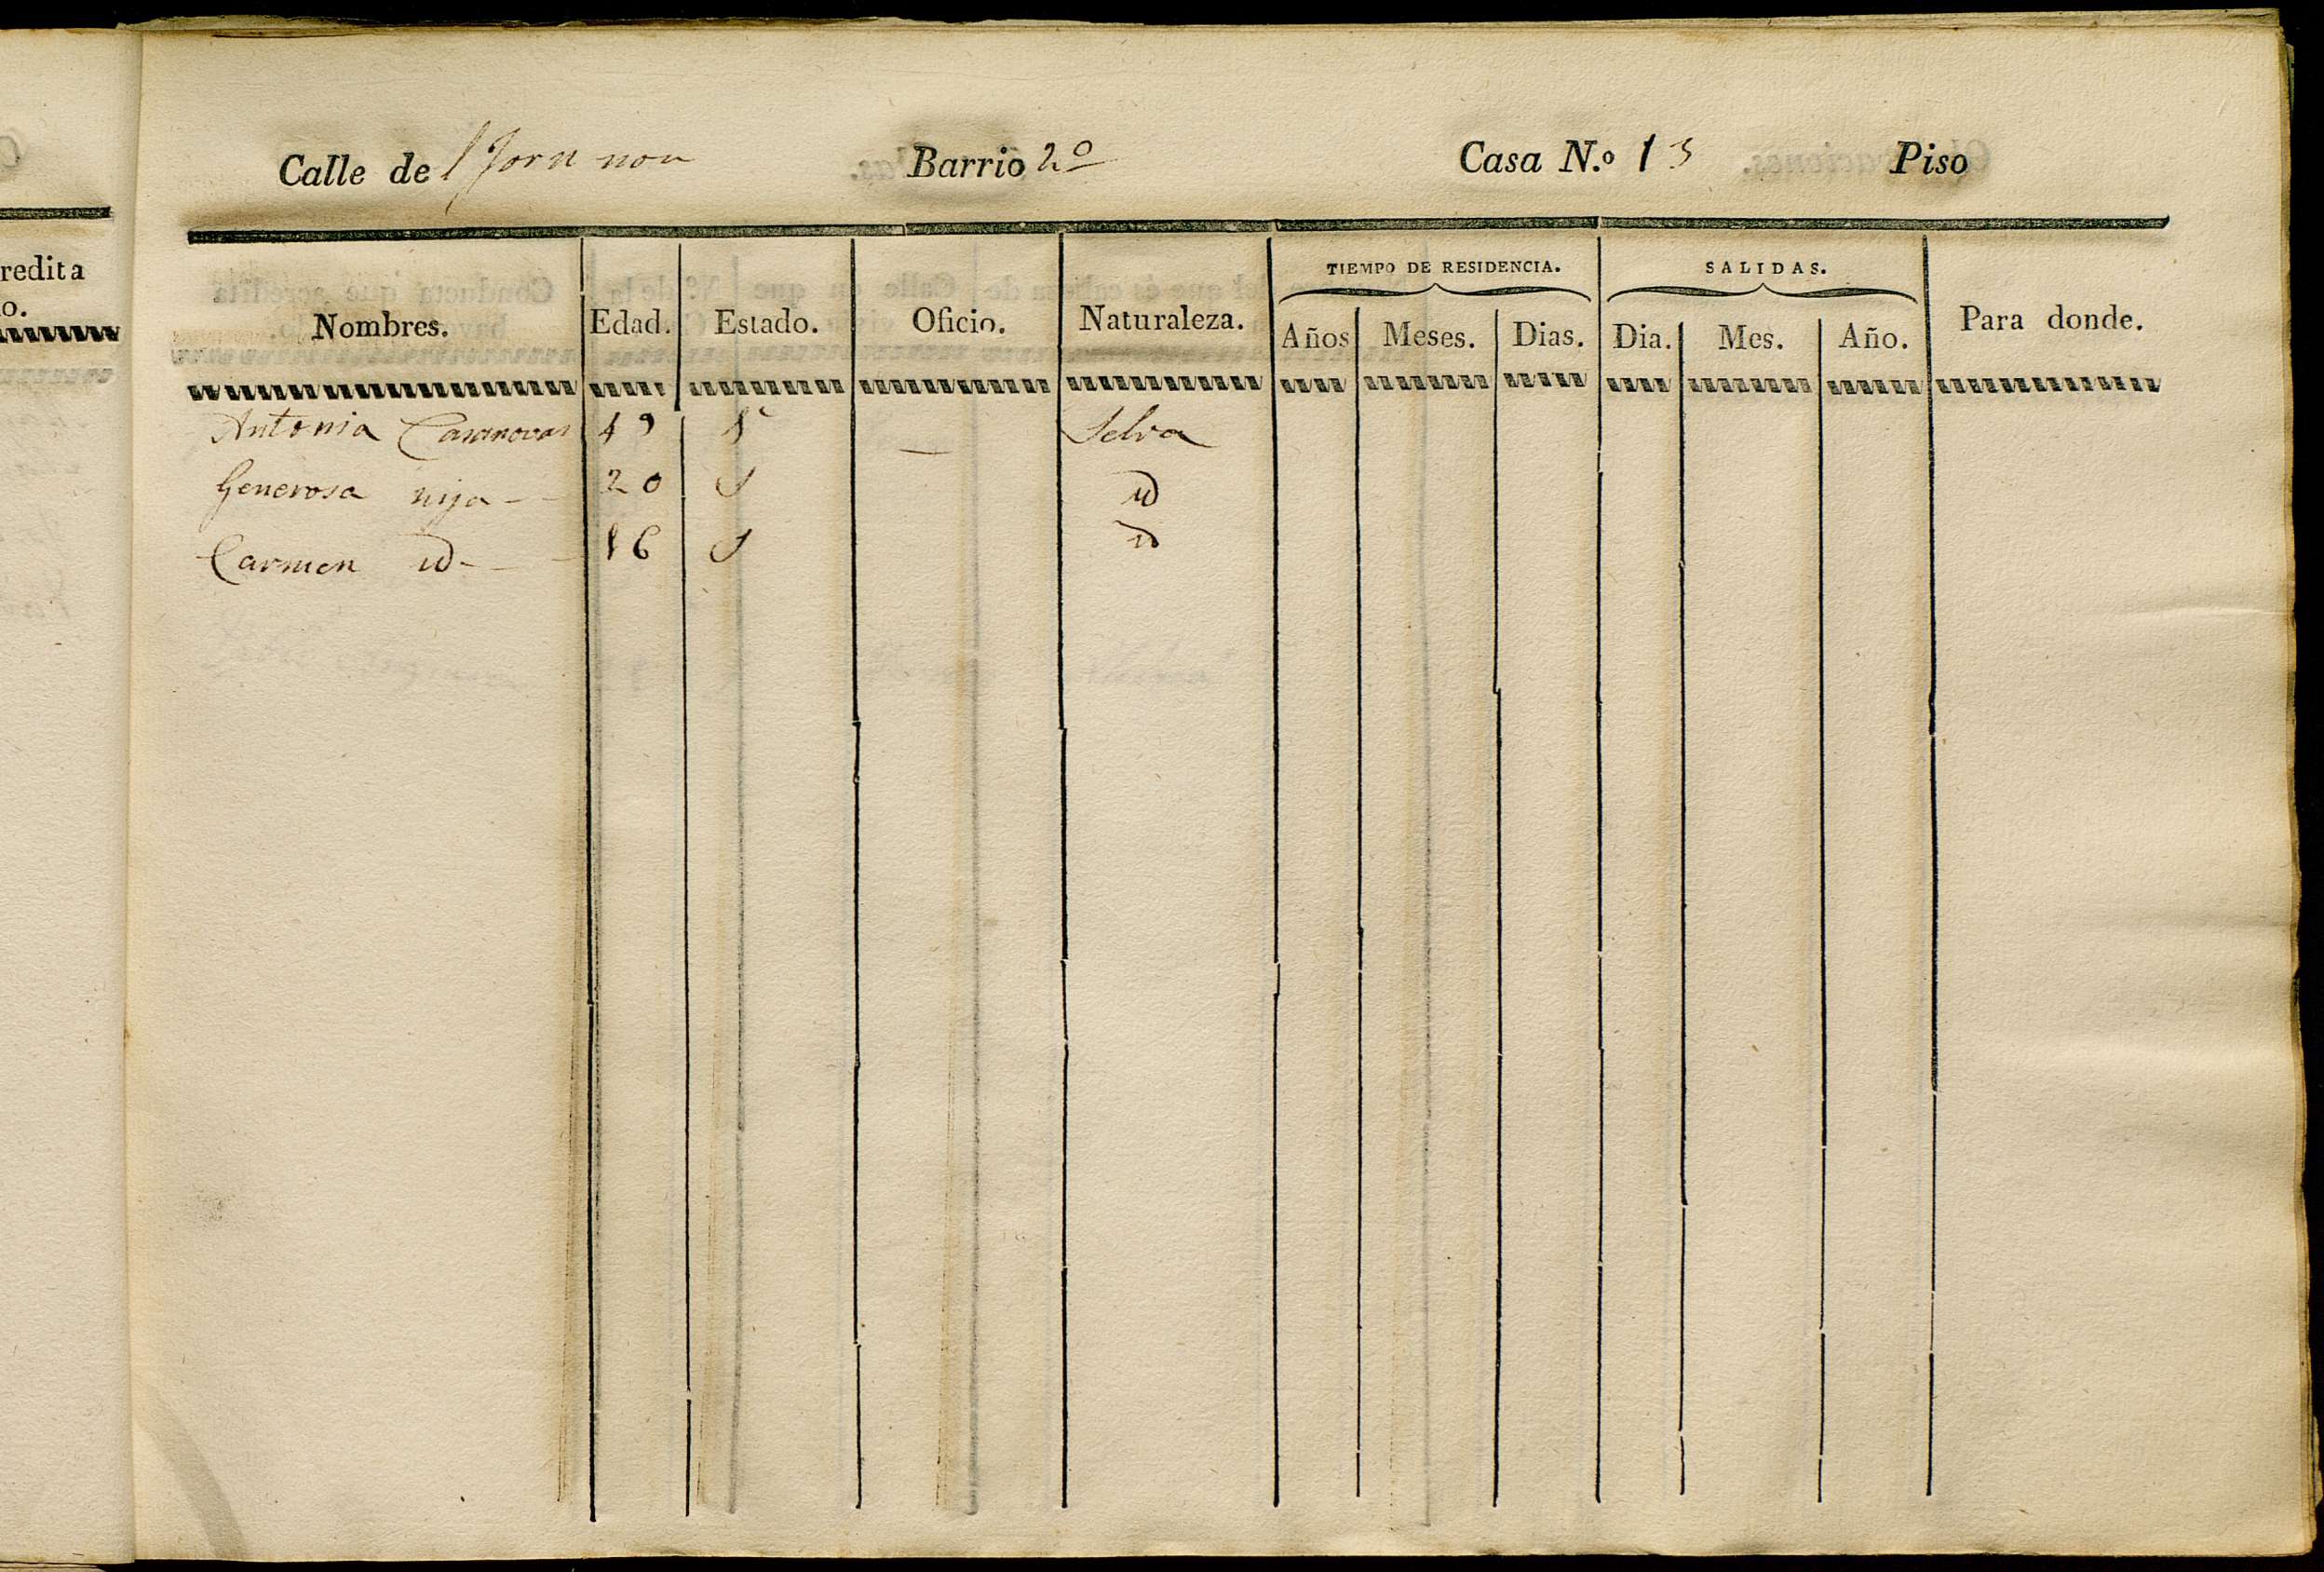 redita
o.
Calle de l Forn nou Barrio 2º Casa N.º 13 Piso
TIEMPO DE RESIDENCIA. SALIDAS.
Nombres. Edad. Estado. Oficio. Naturaleza. Años Meses. Dias. Dia. Mes. Año. Para donde.
Antonia Casanovas 49 Selva
Generosa hija - - 20 S id
Carmen id - - - 16 S id